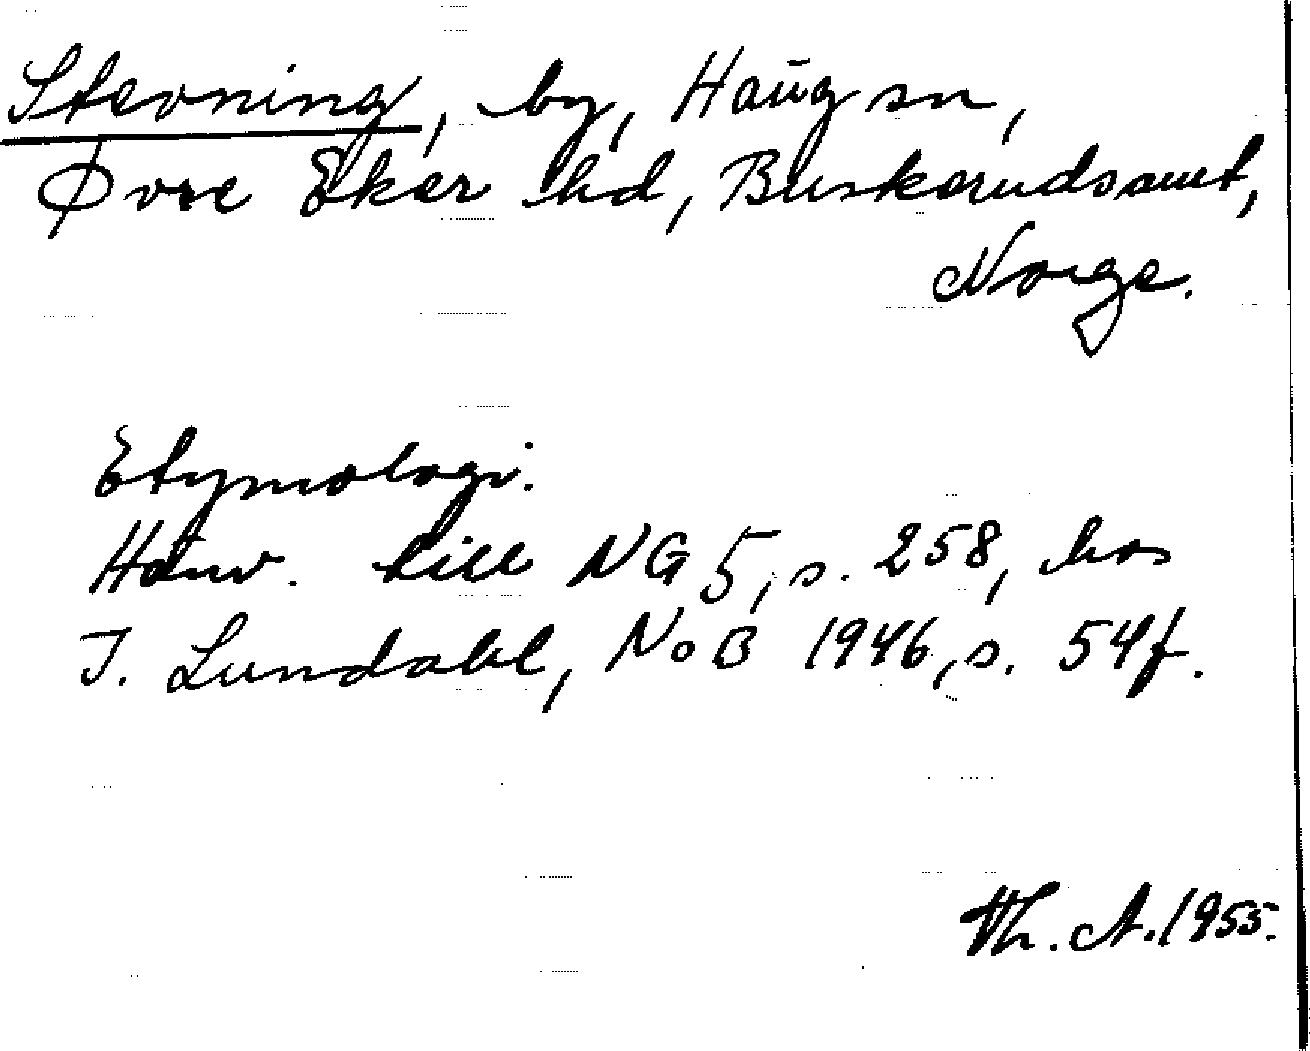 Stevning, by, Haug sn,
Øvre Eker hd, Buskerudsamt,
Norge.
Etymologi.
Hänv. till NG 5, s. 258, hos
I. Lundahl, NoB 1946, s. 54f.
Th. A. 1955.